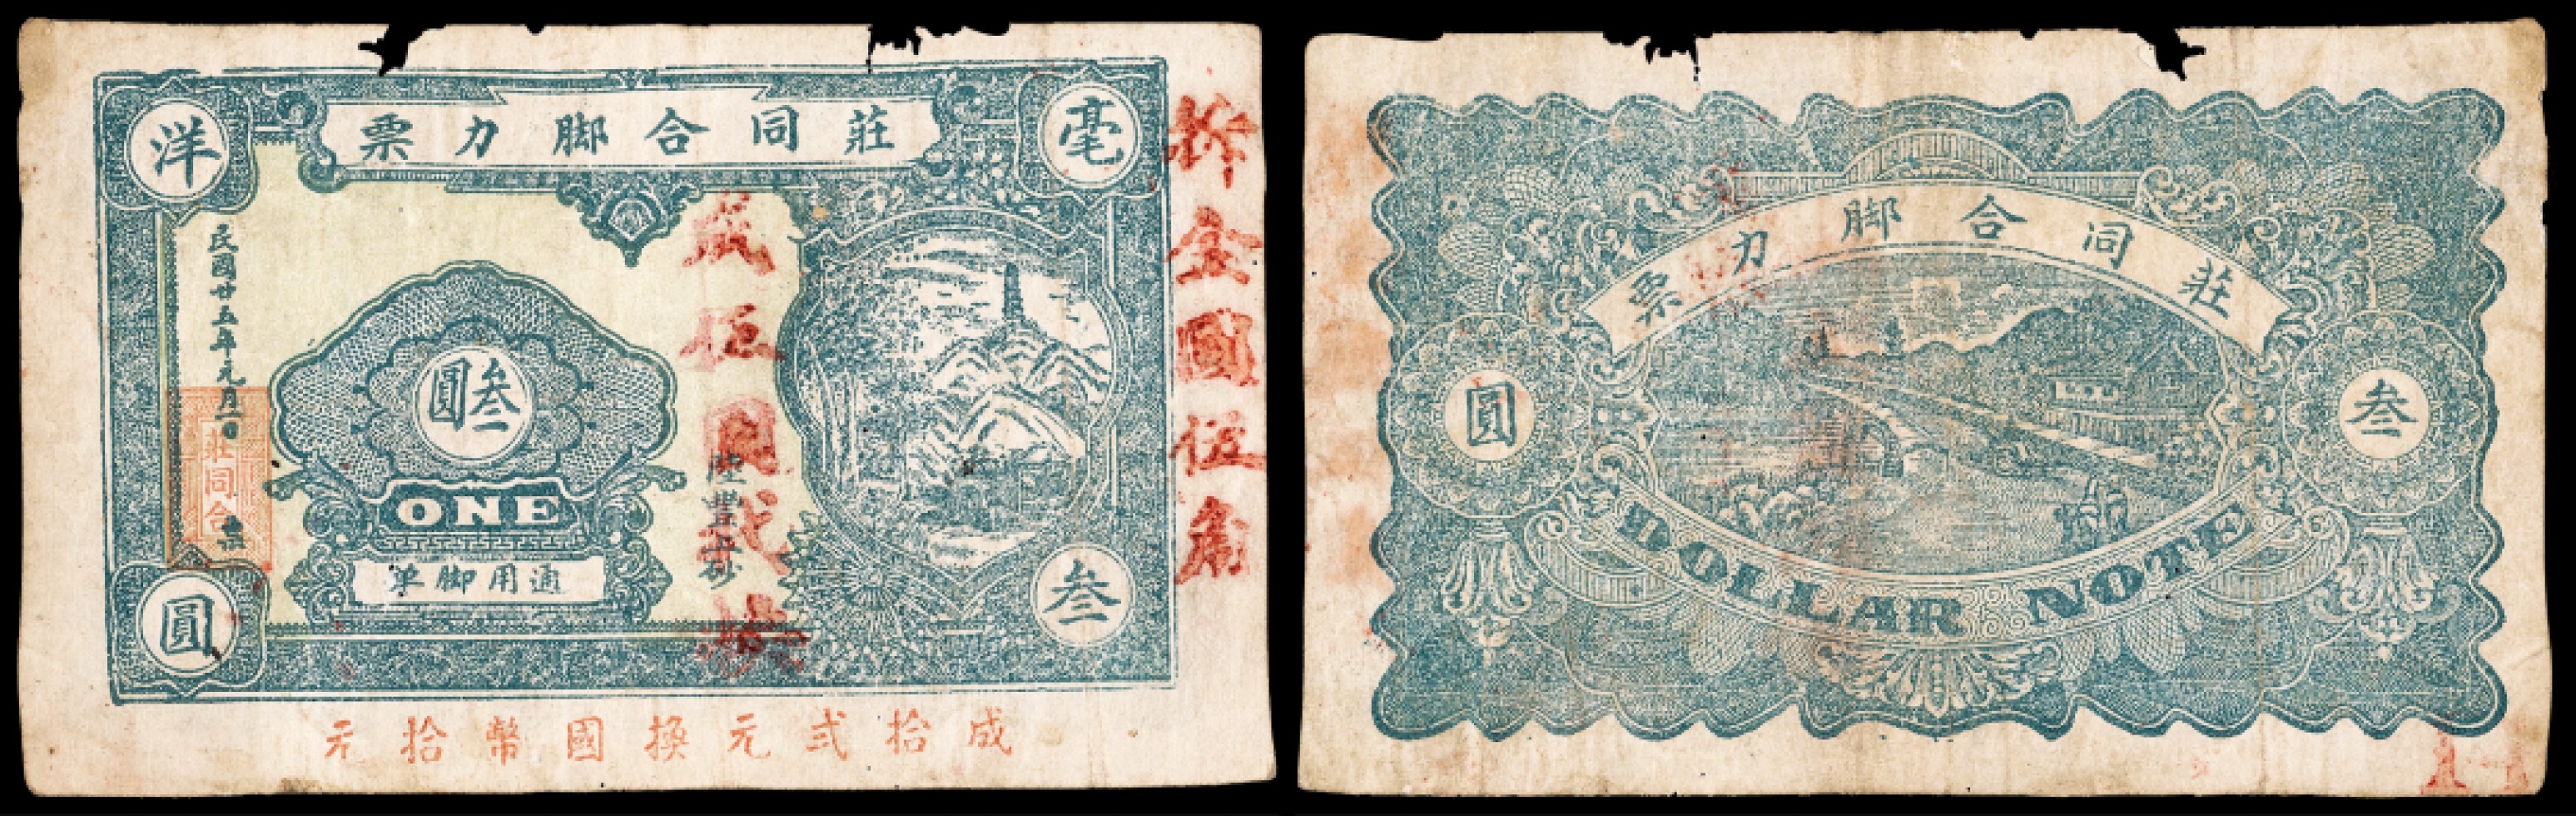 莊同合脚力票
毫洋
叁圓
民國廿五年元月一日
莊同合
叁圓
ONE
通用脚單
陸豐上砂
國伍
成拾弍元換國幣拾元
莊同合脚力票
叁圓
DOLLAR NOTE